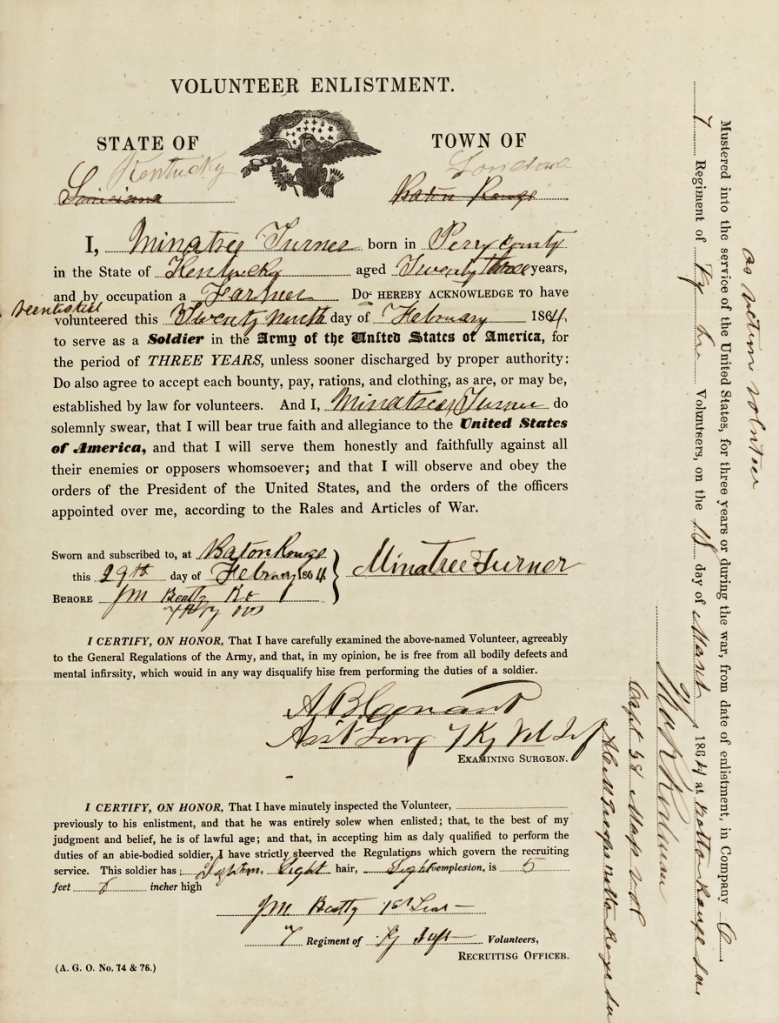 VOLUNTEER ENLISTMENT.
STATE OF TOWN OF
Kentucky London
Louisiana Baton Rouge
I, Minatree Turner born in Perry County
in the State of Kentucky aged Twenty three years,
and by occupation a Farmer Do HEREBY ACKNOWLEDGE TO have
reenlisted
volunteered this Twenty ninth day of February 1864,
to serve as a Soldier in the Army of the United States of America, for
the period of THREE YEARS, unless sooner discharged by proper authority:
Do also agree to accept each bounty, pay, rations, and clothing, as are, or may be,
established by law for volunteers. And I, Minatree Turner do
solemnly swear, that I will bear true faith and allegiance to the United States
of America, and that I will serve them honestly and faithfully against all
their enemies or opposers whomsoever; and that I will observe and obey the
orders of the President of the United States, and the orders of the officers
appointed over me, according to the Rales and Articles of War.
Sworn and subscribed to, at Baton Rouge
this 29th day of February 1864
BERORE JM Beatty
Minatree Turner
I CERTIFY, ON HONOR, That I have carefully examined the above-named Volunteer, agreeably
to the General Regulations of the Army, and that, in my opinion, he is free from all bodily defects and
mental infirssity, which wouid in any way disqualify hise frem performing the duties of a soldier.
Asst Surg 7 Ky Vol Inf
EXAMINING SURGEON.
I CERTIFY, ON HONOR, That I have minutely inspected the Volunteer,
previously to his enlistment, and that he was entirely solew when enlisted; that, to the best of my
judgment and belief, he is of lawful age; and that, in accepting him as daly qualified to perform the
duties of an abie-bodied soldier, I have strictly sbserved the Regulations which govern the recruiting
service. This soldier has: Light hair, Light cemplesion, is 5
feet incher high
JM Beatty 1st Lieut
7 Regiment of Ky Inft Volunteers,
RECRUITING OFFICEB.
(A. G. O. No. 74 & 76.)
as veteran volunteer
Mustered into the service of the United States, for three years or during the war, from date of enlistment, in Company
7 Regiment of Ky Volunteers, on the day of March 1864 at Baton Rouge La
Capt